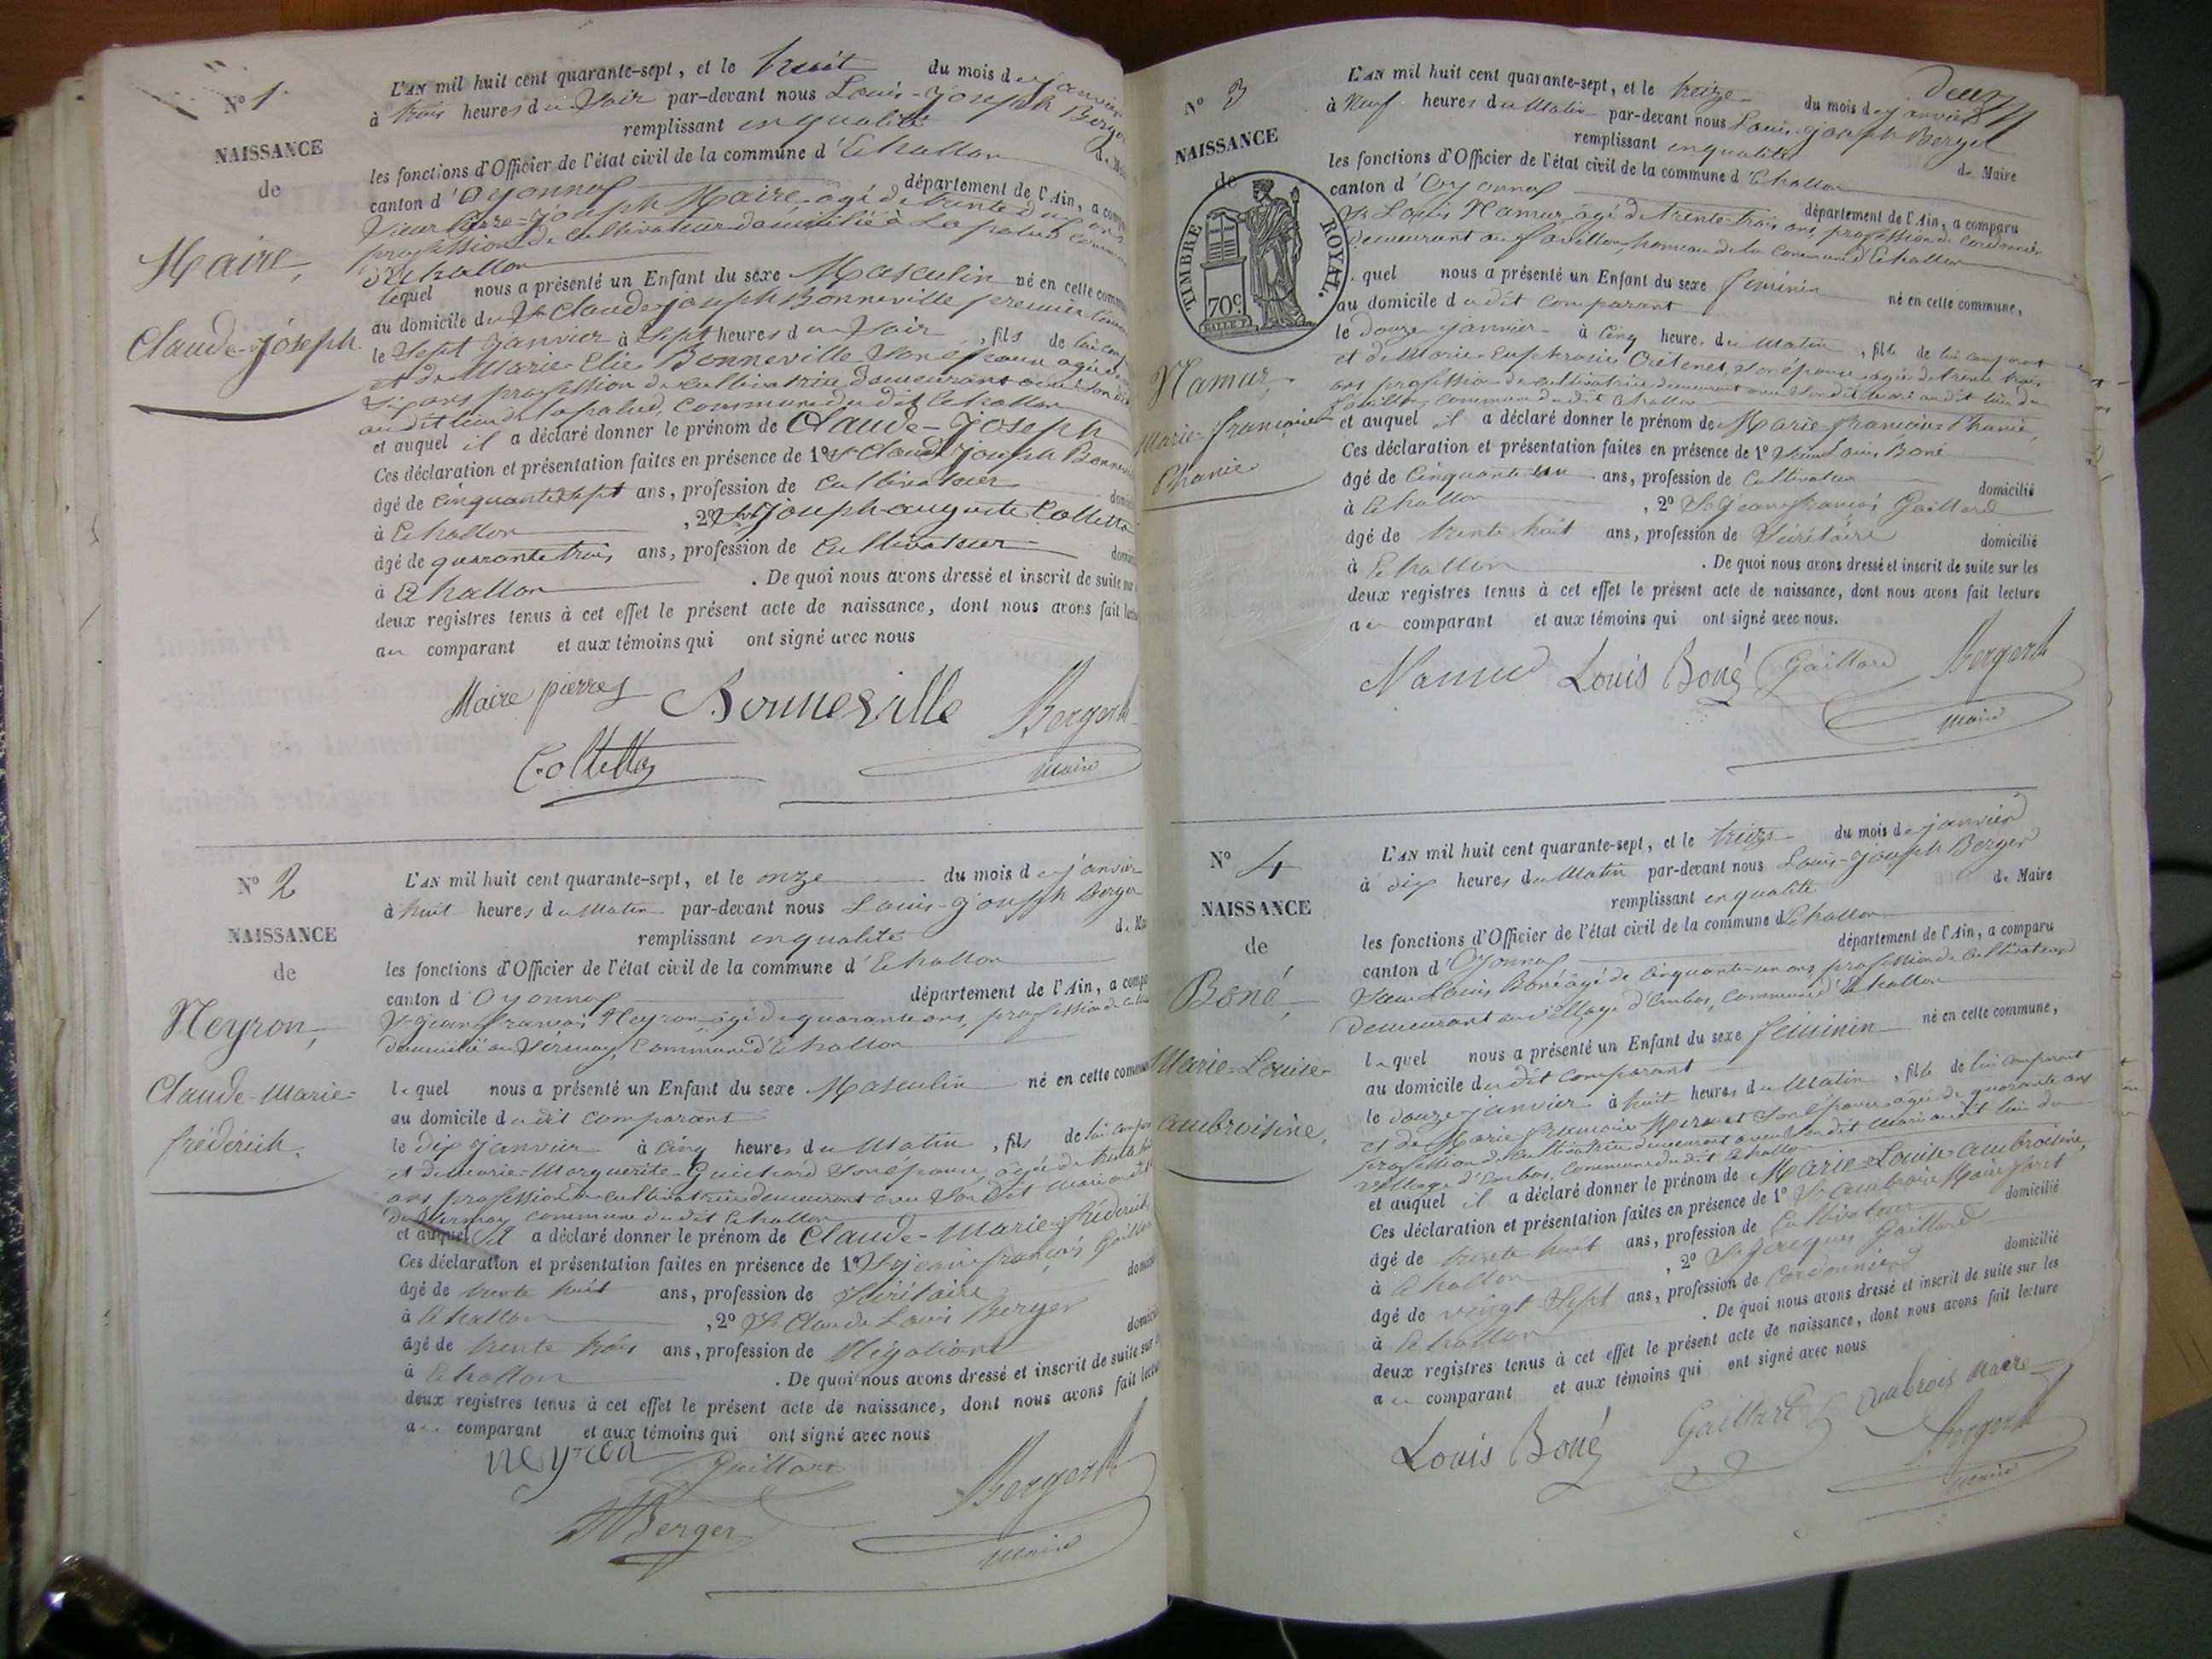 N° 1
NAISSANCE
de
Maire,
Claude-Joseph
L'AN mil huit cent quarante-sept, et le huit du mois de janvier
à trois heures du Soir par-devant nous Louis-Joseph Berger
remplissant en qualité de
les fonctions d'Officier de l'état civil de la commune d'Echallon
canton d'Oyonnax département de l'Ain, a
Sieur Pierre-Joseph Maire âgé de trente ans
profession de cultivateur domicilié à Lapalud
d'Echallon
lequel nous a présenté un Enfant du sexe Masculin né en cette
au domicile du Sr Claude-Joseph Bonneville premier
le Sept janvier à Sept heures du Soir, fils de lui
et de Marie Elie Bonneville Son épouse agée
Six ans profession de cultivatrice demeurant avec Son dit
au dit lieu de Lapalud, commune du dit Echallon
et auquel il a déclaré donner le prénom de Claude-Joseph
Ces déclaration et présentation faites en présence de 1° Sr Claude Joseph
âgé de cinquante sept ans, profession de Cultivateur
à Echallon, 2° Sr Joseph auguste Collettaz
âgé de quarante trois ans, profession de Cultivateur
à Echallon. De quoi nous avons dressé et inscrit de suite sur
deux registres tenus à cet effet le présent acte de naissance, dont nous avons fait
au comparant et aux témoins qui ont signé avec nous
Maire pierre J Bonneville Berger
Collettaz Maire
N° 2
NAISSANCE
de
Neyron,
Claude-Marie-
frédérich.
L'AN mil huit cent quarante-sept, et le onze du mois de janvier
à huit heures du Matin par-devant nous Louis-Joseph Berger
remplissant en qualité de
les fonctions d'Officier de l'état civil de la commune d'Echallon
canton d'Oyonnax département de l'Ain, a
Sr Jean françois Neyron âgé de quarante ans, profession de
domicilié au Commune d'Echallon
lequel nous a présenté un Enfant du sexe Masculin né en cette
au domicile du dit comparant
le dix janvier à cinq heures du Matin, fils de lui
et de marie-Marguerite Guichard Son épouse, agée de trente
ans profession de cultivatrice demeurant avec Son dit mari
commune du dit Echallon
et auquel il a déclaré donner le prénom de Claude-Marie-frédérich
Ces déclaration et présentation faites en présence de 1° Sr Jean françois
âgé de trente huit ans, profession de
à Echallon, 2° Sr Claude Louis Berger
âgé de trente trois ans, profession de Négotiant
à Echallon. De quoi nous avons dressé et inscrit de suite sur
deux registres tenus à cet effet le présent acte de naissance, dont nous avons fait
au comparant et aux témoins qui ont signé avec nous
neyron Gaillard
Berger Berger
Maire
deux
N° 3
NAISSANCE
de
TIMBRE ROYAL.
70 c.
Namur,
Marie-françoise
Phanie
L'AN mil huit cent quarante-sept, et le treize du mois de janvier
à Neuf heures du Matin par-devant nous Louis-Joseph Berger
remplissant en qualité de Maire
les fonctions d'Officier de l'état civil de la commune d'Echallon
canton d'Oyonnax département de l'Ain, a comparu
Sr Louis Namur, âgé de trente-trois ans, profession de cordonnier
demeurant au favillon, hameau de la Commune d'Echallon
lequel nous a présenté un Enfant du sexe féminin né en cette commune,
au domicile du dit Comparant
le douze janvier à cinq heures du Matin, fille de lui comparant
et de Marie-Euphrasie Son épouse agée de trente trois
ans profession de cultivatrice demeurant avec Son dit mari au dit lieu du
favillon, commune du dit Echallon
et auquel il a déclaré donner le prénom de Marie-françoise Phanie,
Ces déclaration et présentation faites en présence de 1° Sieur Louis Boné
âgé de Cinquante un ans, profession de Cultivateur domicilié
à Echallon, 2° Sr Jean françois Gaillard
âgé de trente huit ans, profession de domicilié
à Echallon. De quoi nous avons dressé et inscrit de suite sur les
deux registres tenus à cet effet le présent acte de naissance, dont nous avons fait lecture
au comparant et aux témoins qui ont signé avec nous.
Namur Louis Boné Gaillard Berger
Maire
N° 4
NAISSANCE
de
Boné,
Marie-Louise-
ambroisine.
L'AN mil huit cent quarante-sept, et le treize du mois de janvier
à dix heures du Matin par-devant nous Louis-Joseph Berger
remplissant en qualité de Maire
les fonctions d'Officier de l'état civil de la commune d'Echallon
canton d'Oyonnax département de l'Ain, a comparu
Sieur Louis Boné âgé de cinquante-un ans profession de cultivateur
demeurant au village d'Embos, commune d'Echallon
lequel nous a présenté un Enfant du sexe féminin né en cette commune,
au domicile du dit comparant
le douze janvier à huit heures du Matin, fille de lui comparant
et de Marie françoise Mermet Son épouse agée de quarante ans
profession de cultivatrice demeurant avec Son dit Mari au dit lieu du
village d'Embos, Commune du dit Echallon
et auquel il a déclaré donner le prénom de Marie-Louise ambroisine,
Ces déclaration et présentation faites en présence de 1° Sr ambroise Maire
âgé de trente huit ans, profession de Cultivateur domicilié
à Echallon, 2° Sr Jacques Gaillard
âgé de vingt-Sept ans, profession de Cordonnier domicilié
à Echallon. De quoi nous avons dressé et inscrit de suite sur les
deux registres tenus à cet effet le présent acte de naissance, dont nous avons fait lecture
au comparant et aux témoins qui ont signé avec nous
Louis Boné Gaillard ambrois Maire
Berger
Maire